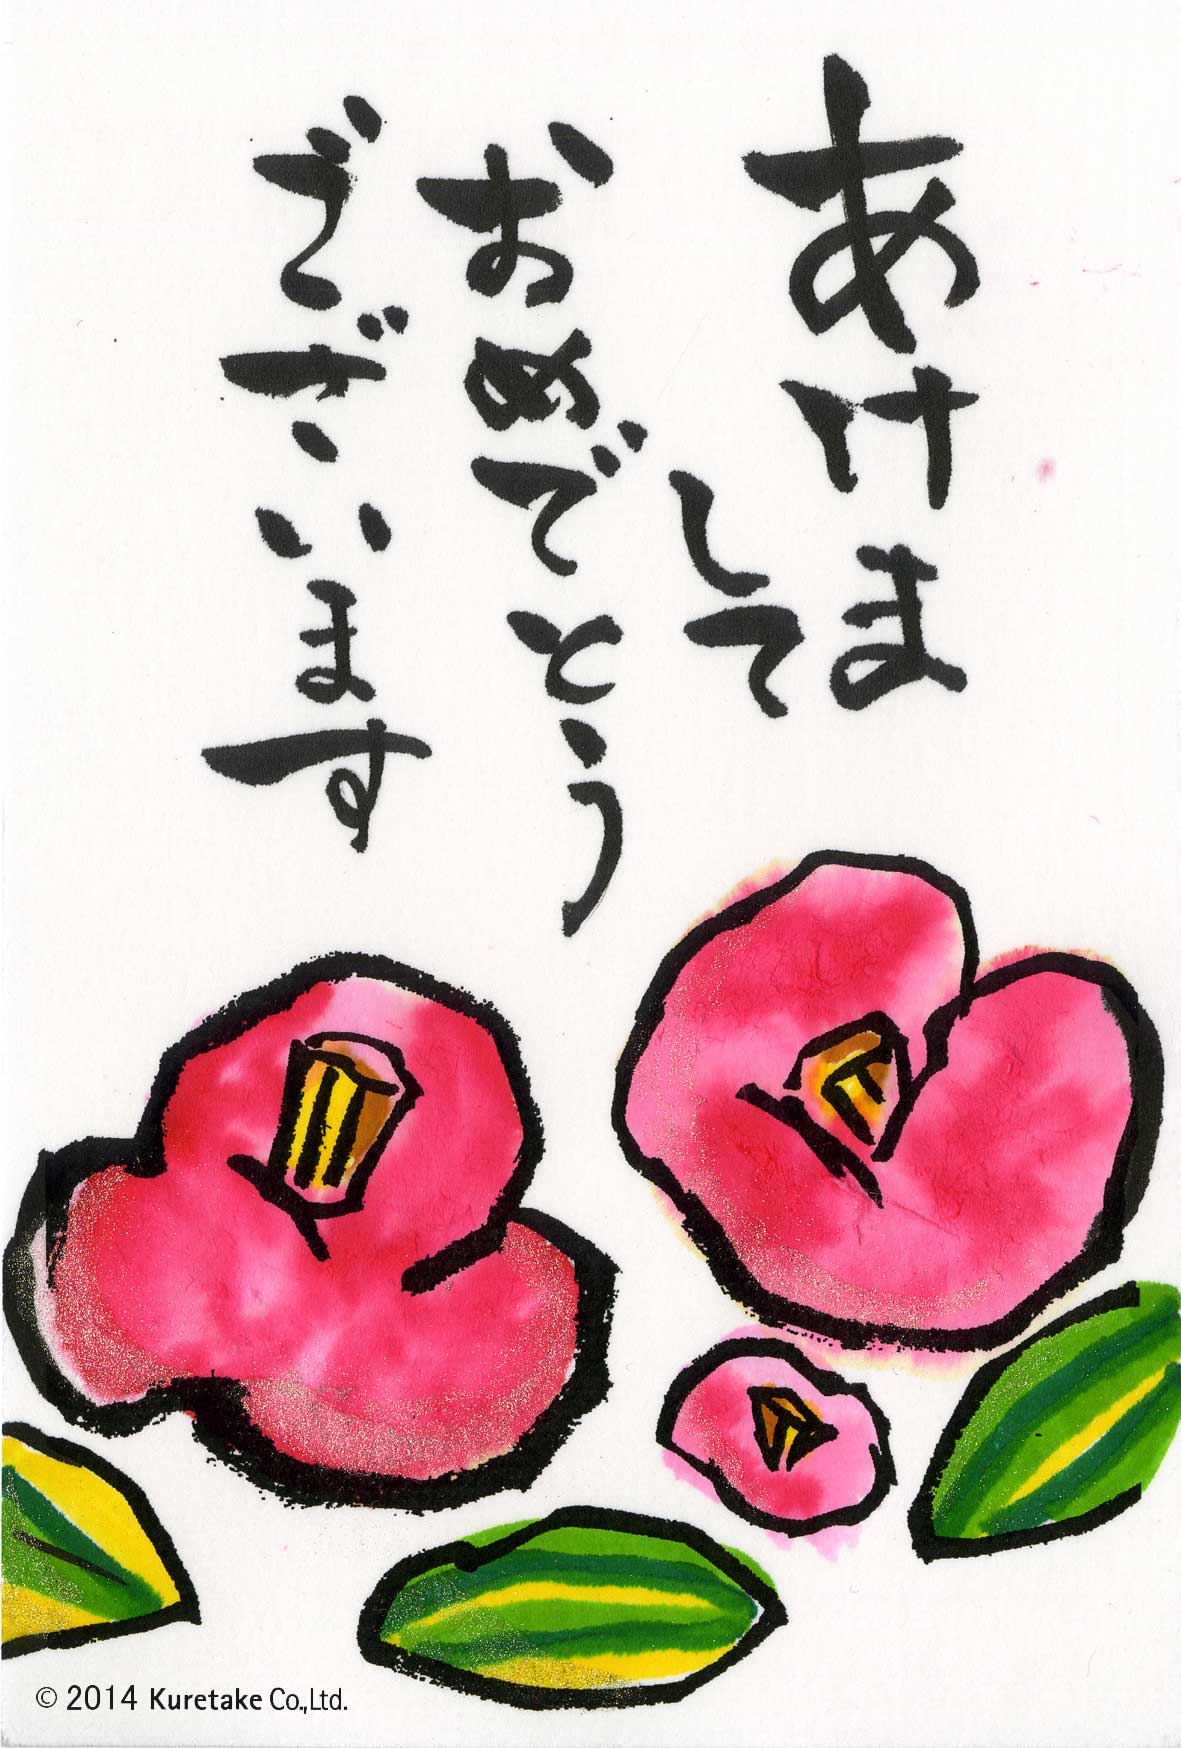 あけま
して
おめでとう
ございます
© 2014 Kuretake Co.,Ltd.